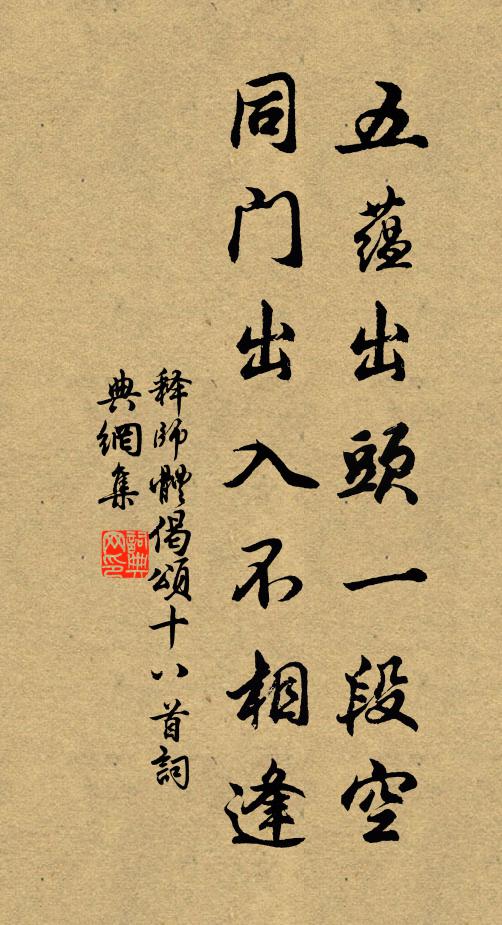 五蕴出頭一段空
同门出入不相逢
释師體偈頌十八首詞
典網集
詞典网印